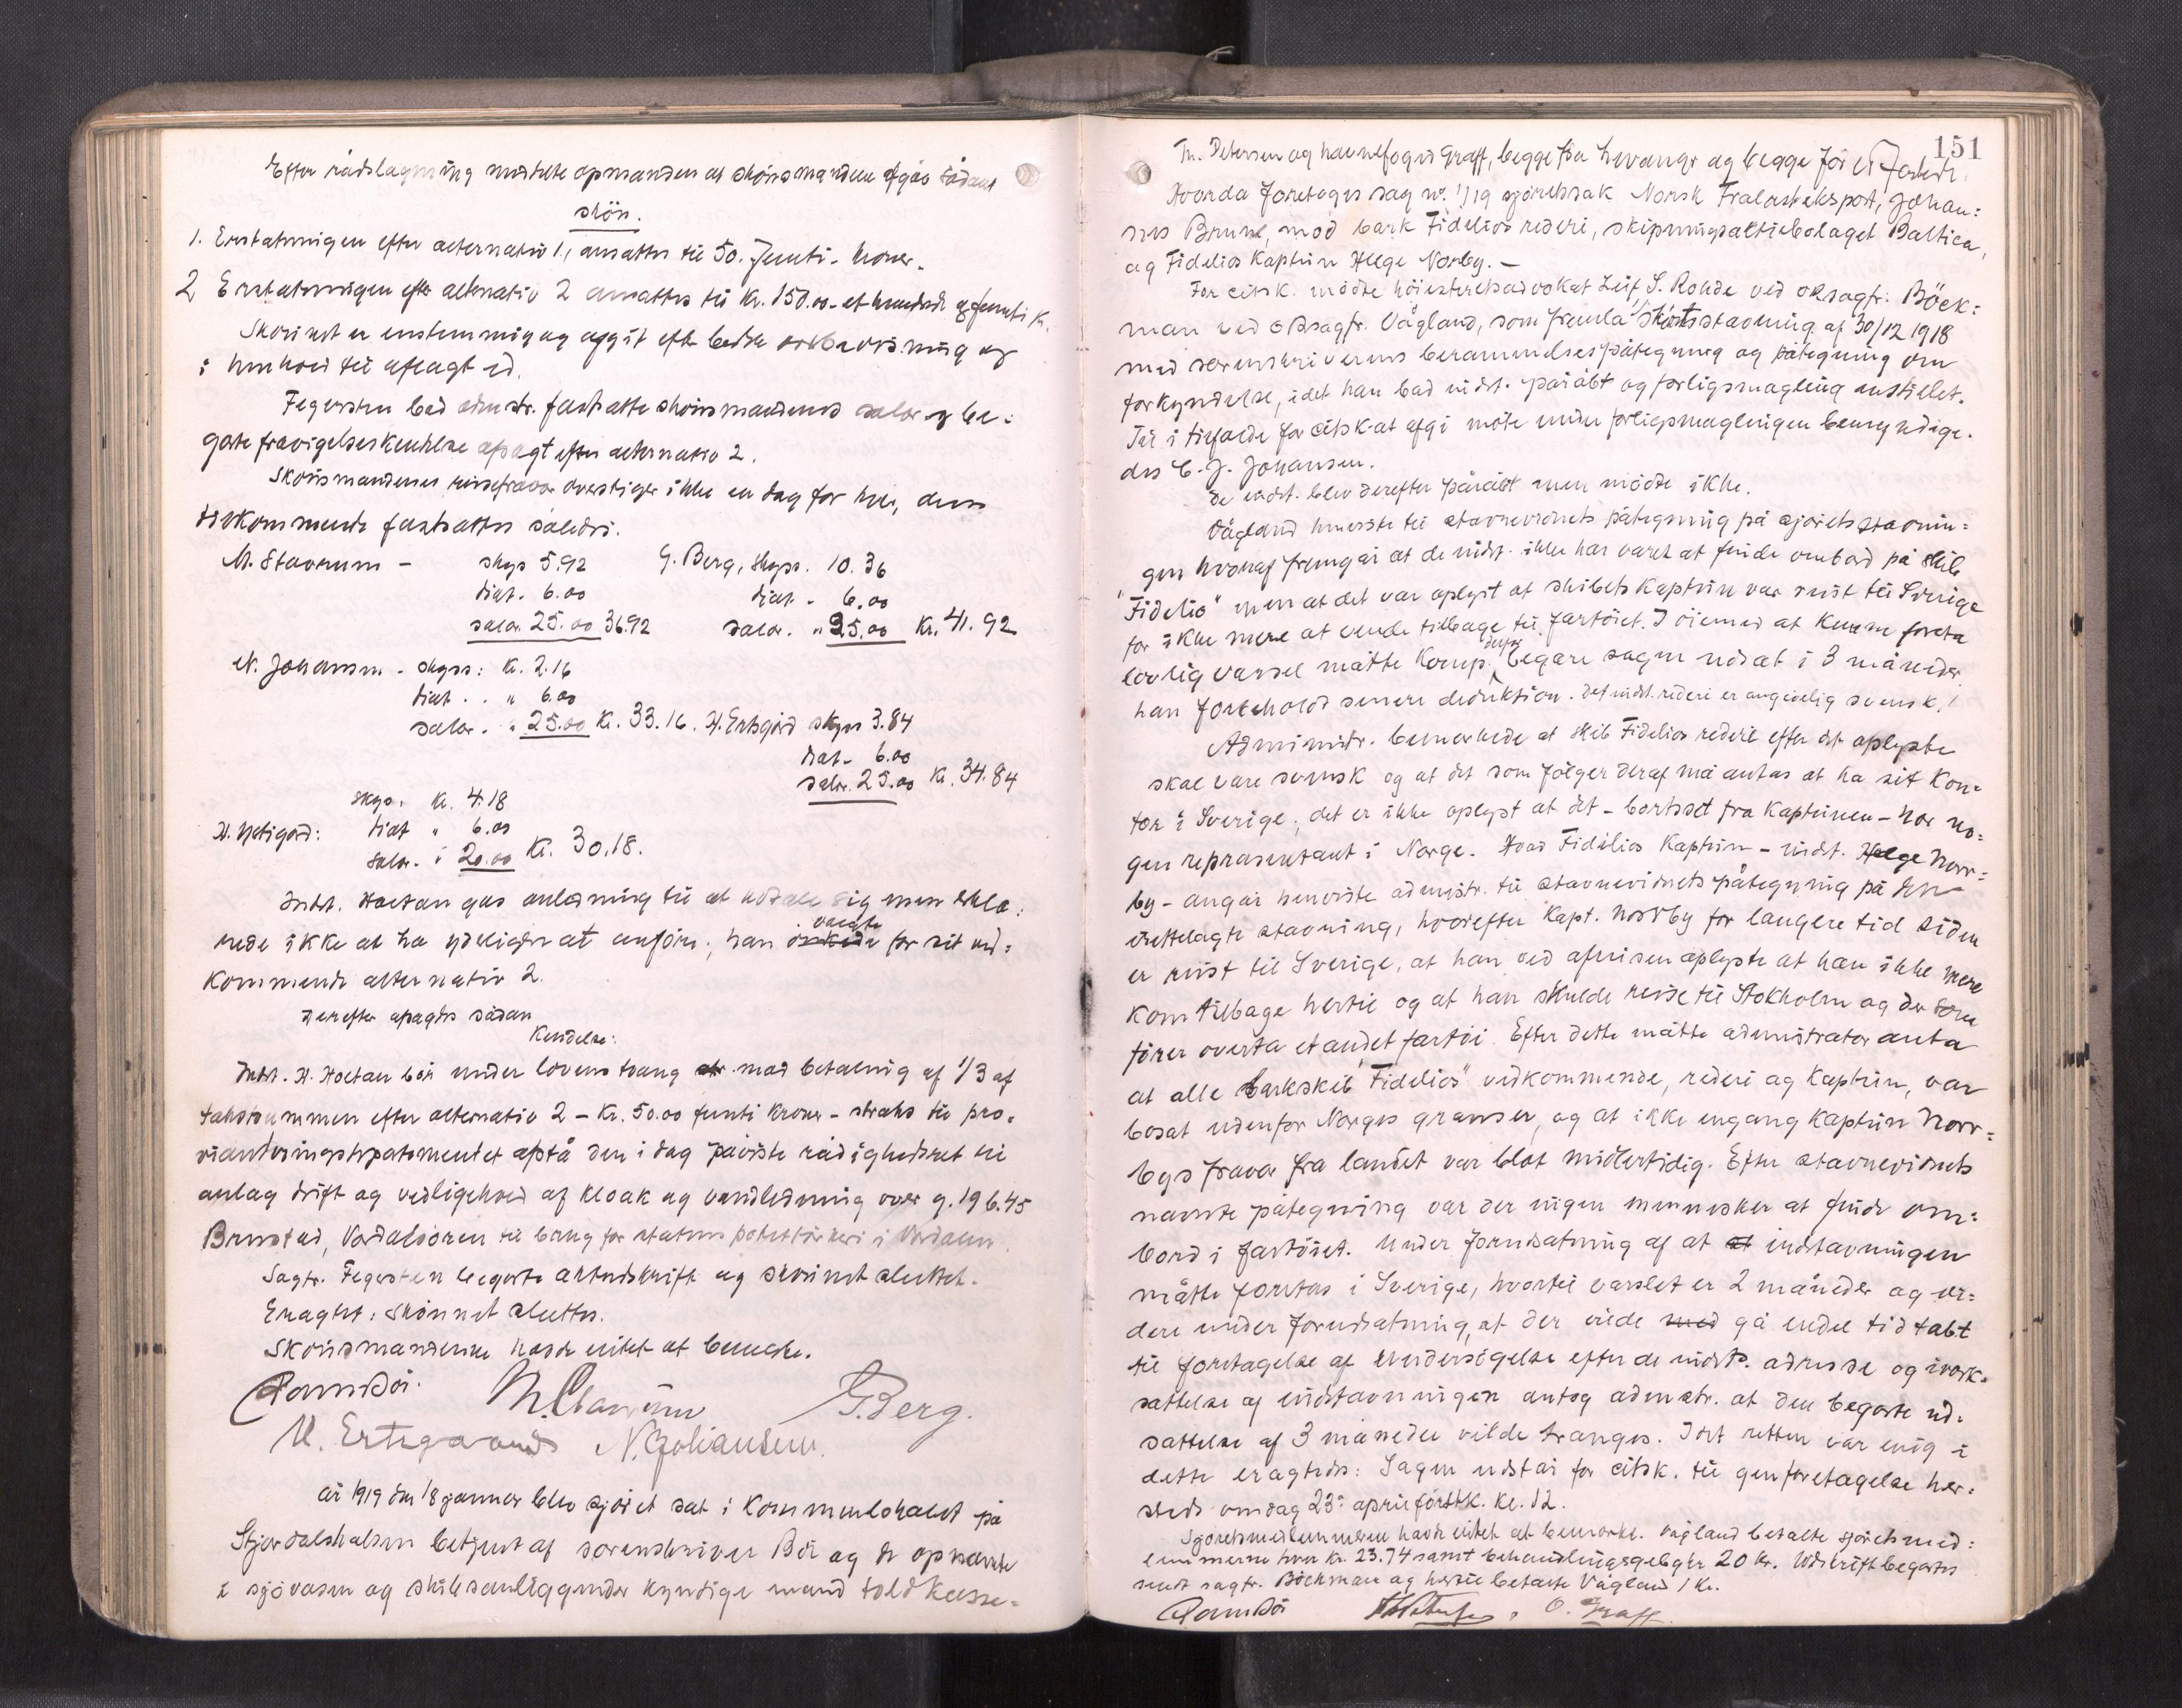 Efter rådslagning meddelte opmanden at skönsmændene afgav sådant
skön.
1. Erstatningen efter alternativ 1, ansættes til 50. femti - kroner.
2. Erstatningen efter alternativ 2 ansættes til kr. 150.00 - et hundrede og femti kr.
Skönnet er enstemmig og afgit efter bedste overbevisning og
i henhold til aflagt ed.
Fegersten bad admstr. fastsætte skönsmændenes salær og be-
gærte fravigelseskendelse afsagt efter alternativ 2.
Skönsmændenes reisefravær overstiger ikke en dag for hver, deres
tilkommende fastsættes således.
M. Stavrum - skys 5.92 G. Berg, skyss. 10.36
diæt. 6.00 diæt. - 6.00
salær 25.00 36.92 salær. " 25.00 Kr. 41.92
N. Johansen - skyss: kr. 2.16
diæt . . " 6.00
salær . " 25.00 Kr. 33.16. H. Ertsgård skyss 3.84
diæt - 6.00
salær. 25.00 Kr. 34.84
skys. kr. 4.18
H. : diæt " 6.00
salær. " 20.00 Kr. 30.18.
Indst. Hoetan gav anledning til at udtale sig men erklæ-
rede ikke at ha yderligere at anföre; han valgte for sit ved-
kommende alternativ 2.
Derefter afsagdes sådan
Kendelse:
Indst. H. Hoetan bör under lovens tvang mod betaling af 1/3 af
takstsummen efter alternativ 2 - Kr. 50.00 femti kroner - straks til pro-
vianteringsdepartementet afstå den i dag påviste rådighedsret til
anlæg drift og vedligehold af kloak og vandledning over g. 19 b. 45
Brustad, Værdalsören til brug for statens potettörkeri i Værdalen.
Sagfr. Fegersten begærte aktudskrift og skönnet sluttet.
Eragtet: skönnet sluttes.
Skönsmændene havde intet at bemerke.
Ramm Bö. M. Stavrum G. Berg.
H. Ertsgaard N. Johansen.
År 1919 den 18 januar blev sjöret sat i kommunelokalet på
Stjördalshalsen betjent af sorenskriver Bö og de opnævnte
i sjövæsen og skibsanliggender kyndige mænd toldkasse-
151
Th. Petersen og havnefoged Graff, begge fra Levanger og begge för edfæstede.
Hvorda foretoges sag no. 1/19 sjöretssak Norsk Trælasteksport, Johan-
nes Bruns, mod bark Fidelios rederi, skipningsaktiebolaget Baltica,
og Fidelios kaptein Helge Norby. -
For citsk. mödte höiesteretsadvokat Leif S. Rohde ved oksagfr. Böck-
man ved oksagfr. Vågland, som fremla stævning af 30/12 1918
med sorenskriverens berammelsespåtegning og påtegning om
forkyndelse, idet han bad indst. påråbt og forligsmægling anstillet.
Til i tilfælde for citsk. at afgi möte under forligsmæglingen bemyndige-
des C. J. Johansen.
De indst. blev derefter påråbt men mödte ikke.
Vågland henviste til stævnevidnets påtegning på sjöretsstævnin-
gen hvoraf fremgår at de indst. ikke har været at finde ombord på skib
"Fidelio" men at det var oplyst at skibets kaptein var reist til Sverige
for ikke mere at vende tilbage til fartöiet. I öiemed at kunne foreta
lovlig varsel måtte komp. derfor begære sagen udsat i 3 måneder
han forbeholdt senere deduktion. Det indst. rederi er angivelig svensk.
Administr. bemerkede at skib Fidelios rederi efter det oplyste
skal være svensk og at det som fölge deraf må antas at ha sit kon-
tor i Sverige; det er ikke oplyst at det - bortset fra kapteinen - har no-
gen repræsentant i Norge. Hvad Fidelios kaptein - indst. Helge Norr-
by - angår henviste admstr. til stævnevidnets påtegning på den
iretttelagte stævning, hvorefter kapt. Norrby for længere tid siden
er reist til Sverige, at han ved afreisen oplyste at han ikke mere
kom tilbage hertil og at han skulde reise til Stokholm og der som
förer overta et andet fartöi. Efter dette måtte administrator anta
at alle barkskib "Fidelios" vedkommende, rederi og kaptein, var
bosat udenfor Norges grænser, og at ikke engang kaptein Norr-
bys fravær fra landet var blot midlertidig. Efter stævnevidnets
nævnte påtegning var der ingen mennesker at finde om-
bord i fartöiet. Under forudsætning af at indstævningen
måtte foretas i Sverige, hvortil varslet er 2 måneder og vi-
dere under forudsætning, at der vilde gå endel tid tabt
til foretagelse af undersögelse efter de indsts. adresse og iverk-
sættelse af indstævningen antog admstr. at den begærte ud-
sættelse af 3 måneder vilde trænges. Idet retten var enig i
dette eragtedes: Sagen udstår for citsk. til genforetagelse her-
steds onsdag 23: april förstk. kl. 12.
Sjöretsmedlemmerne havde intet at bemerke. Vågland betalte sjöretsmed-
lemmerne hver kr. 23.74 samt behandlingsgebyr 20 kr. Udskrift begærtes
sendt sagfr. Böckman og hertil betalte Vågland 1 kr.
Ramm Bö Th Petersen. O. Graff.